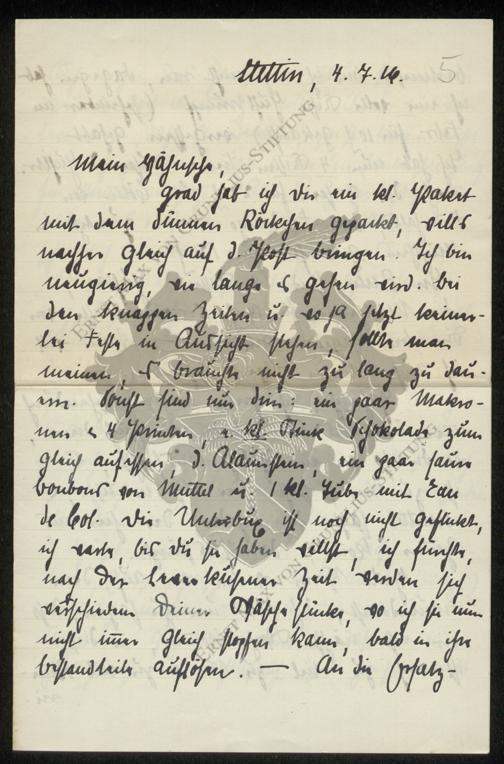 Stettin, 4. 7. 16.
5
Mein Hähnsche,
Grad hab ich Dir ein kl. Paket
mit dem dünnen Röckchen gepackt, wills
nachher gleich auf d. Post bringen. Ich bin
neugierig, wie lange es gehen wird. bei
den knappen Zeiten u. wo ja jetzt keiner-
lei Feste in Aussicht stehen, sollte man
meinen, es brauchte nicht zu lang zu dau-
ern. Sonst sind nur drin: ein paar Makro-
nen & 4 Printen, e. kl. Stück Schokolade zum
gleich aufessen, d. Alaunstein, ein paar saure
bonbons von Muttel u. 1 kl. Tube mit Eau
de Col. Die Unterbux ist noch nicht geflickt,
ich warte, bis Du sie haben willst, ich fürchte,
nach der Leverkusener Zeit werden sich
verschiedene Deiner Wäschestücke, wo ich sie nun
nicht immer gleich stopfen kann, bald in ihre
bestandteile auflösen. — An die Ersatz-
ERNST MAX VON GRUNELIUS-STIFTUNG
ERNST MAX VON GRUNELIUS-STIFTUNG